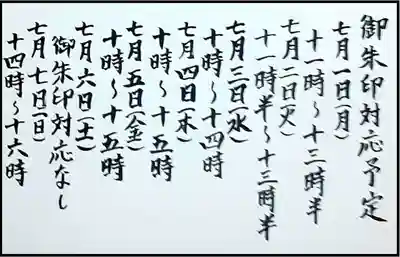 御朱印対応予定
七月一日(月)
十一時～十三時半
七月二日(火)
十一時半～十三時半
七月三日(水)
十時～十四時
七月四日(木)
十時～十五時
七月五日(金)
十時～十五時
七月六日(土)
御朱印対応なし
七月七日(日)
十四時～十六時